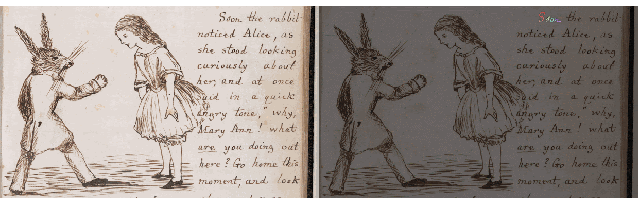 Soon the rabbit
noticed Alice, as
she stood looking
curiously about
her, and at once
said in a quick
angry tone, why,
Mary Ann! what
are you doing out
here? Go home this
moment, and look
Soon the rabbit
noticed Alice, as
she stood looking
curiously about
her, and at once
said in a quick
angry tone, why,
Mary Ann! what
are you doing out
here? Go home this
moment, and look